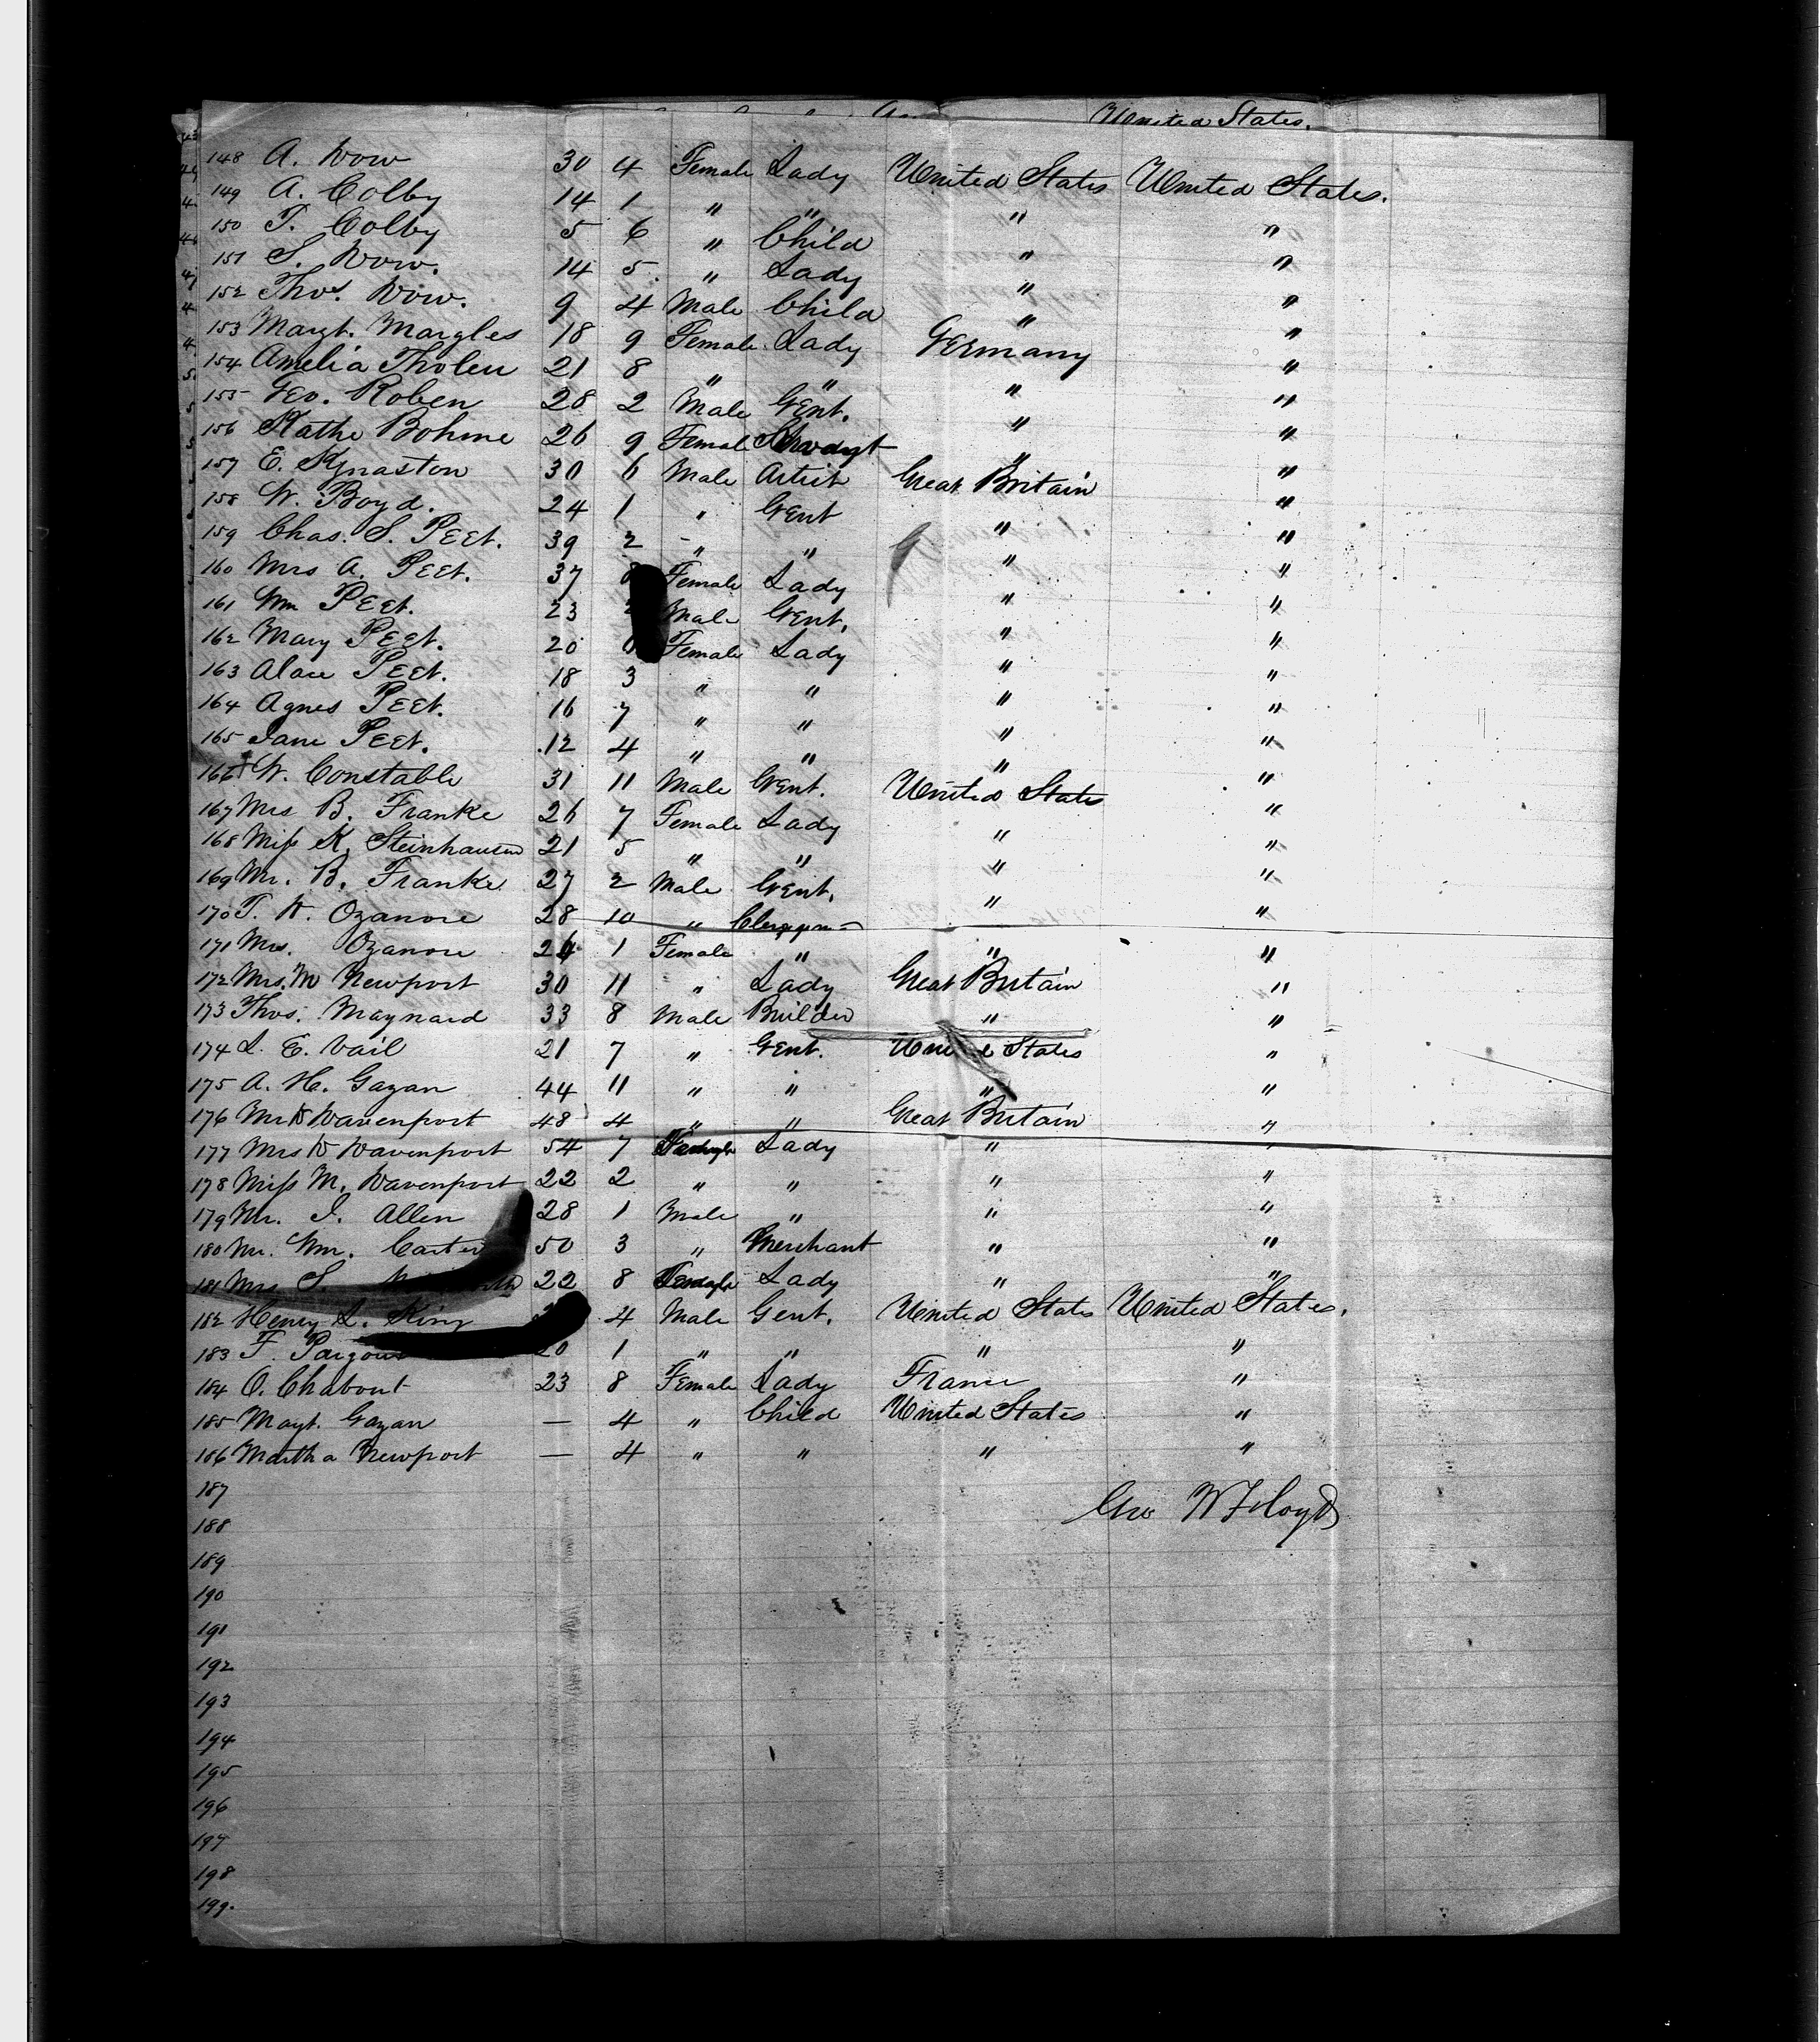 United States.
148 A. Dow 30 4 Female Lady United States United States.
149 A. Colby 14 1 " " " "
150 T. Colby 5 6 " Child " "
151 S. Dow. 14 5 " Lady " "
152 Thos. Dow. 9 4 Male Child " "
153 Margt. Margles 18 9 Female Lady Germany "
154 Amelia Tholen 21 8 " " " "
155 Geo. Roben 28 2 Male Gent. " "
156 Kathe Bohme 26 9 Female " "
157 E. Kynaston 30 6 Male Artist Great Britain "
158 W. Boyd. 24 1 " Gent " "
159 Chas. S. Peet. 39 2 " " " "
160 Mrs A. Peet. 37 8 Female Lady " "
161 Wm Peet. 23 Male Gent. " "
162 Mary Peet. 20 Female Lady " "
163 Alace Peet. 18 3 " " " "
164 Agnes Peet. 16 7 " " " "
165 Jane Peet. 12 4 " " " "
166 W. Constable 31 11 Male Gent. United States "
167 Mrs B. Franke 26 7 Female Lady " "
168 Miss K. Steinhausen 21 5 " " " "
169 Mr. B. Franke 27 2 Male Gent. " "
170 T. D. Ozanore 28 10 " " "
171 Mrs. Ozanore 24 1 Female " " "
172 Mrs. M Newport 30 11 " Lady Great Britain "
173 Thos. Maynard 33 8 Male Builder " "
174 L. E. Vail 21 7 " Gent. United States "
175 A. H. Gazan 44 11 " " " "
176 Mr D Davenport 48 4 " " Great Britain "
177 Mrs D Davenport 54 7 Lady " "
178 Miss M. Davenport 22 2 " " " "
179 Mr. J. Allen 28 1 Male " " "
180 Mr. Wm. Carter 50 3 " Merchant " "
181 Mrs S. 22 8 Lady " "
182 Henry L. King 4 Male Gent. United States United States.
183 F. 20 1 " " " "
184 O. Chabout 23 8 Female Lady France "
185 Magt. Gazan — 4 " Child United States "
186 Martha Newport — 4 " " " "
187
Geo W Floyd
188
189
190
191
192
193
194
195
196
197
198
199.